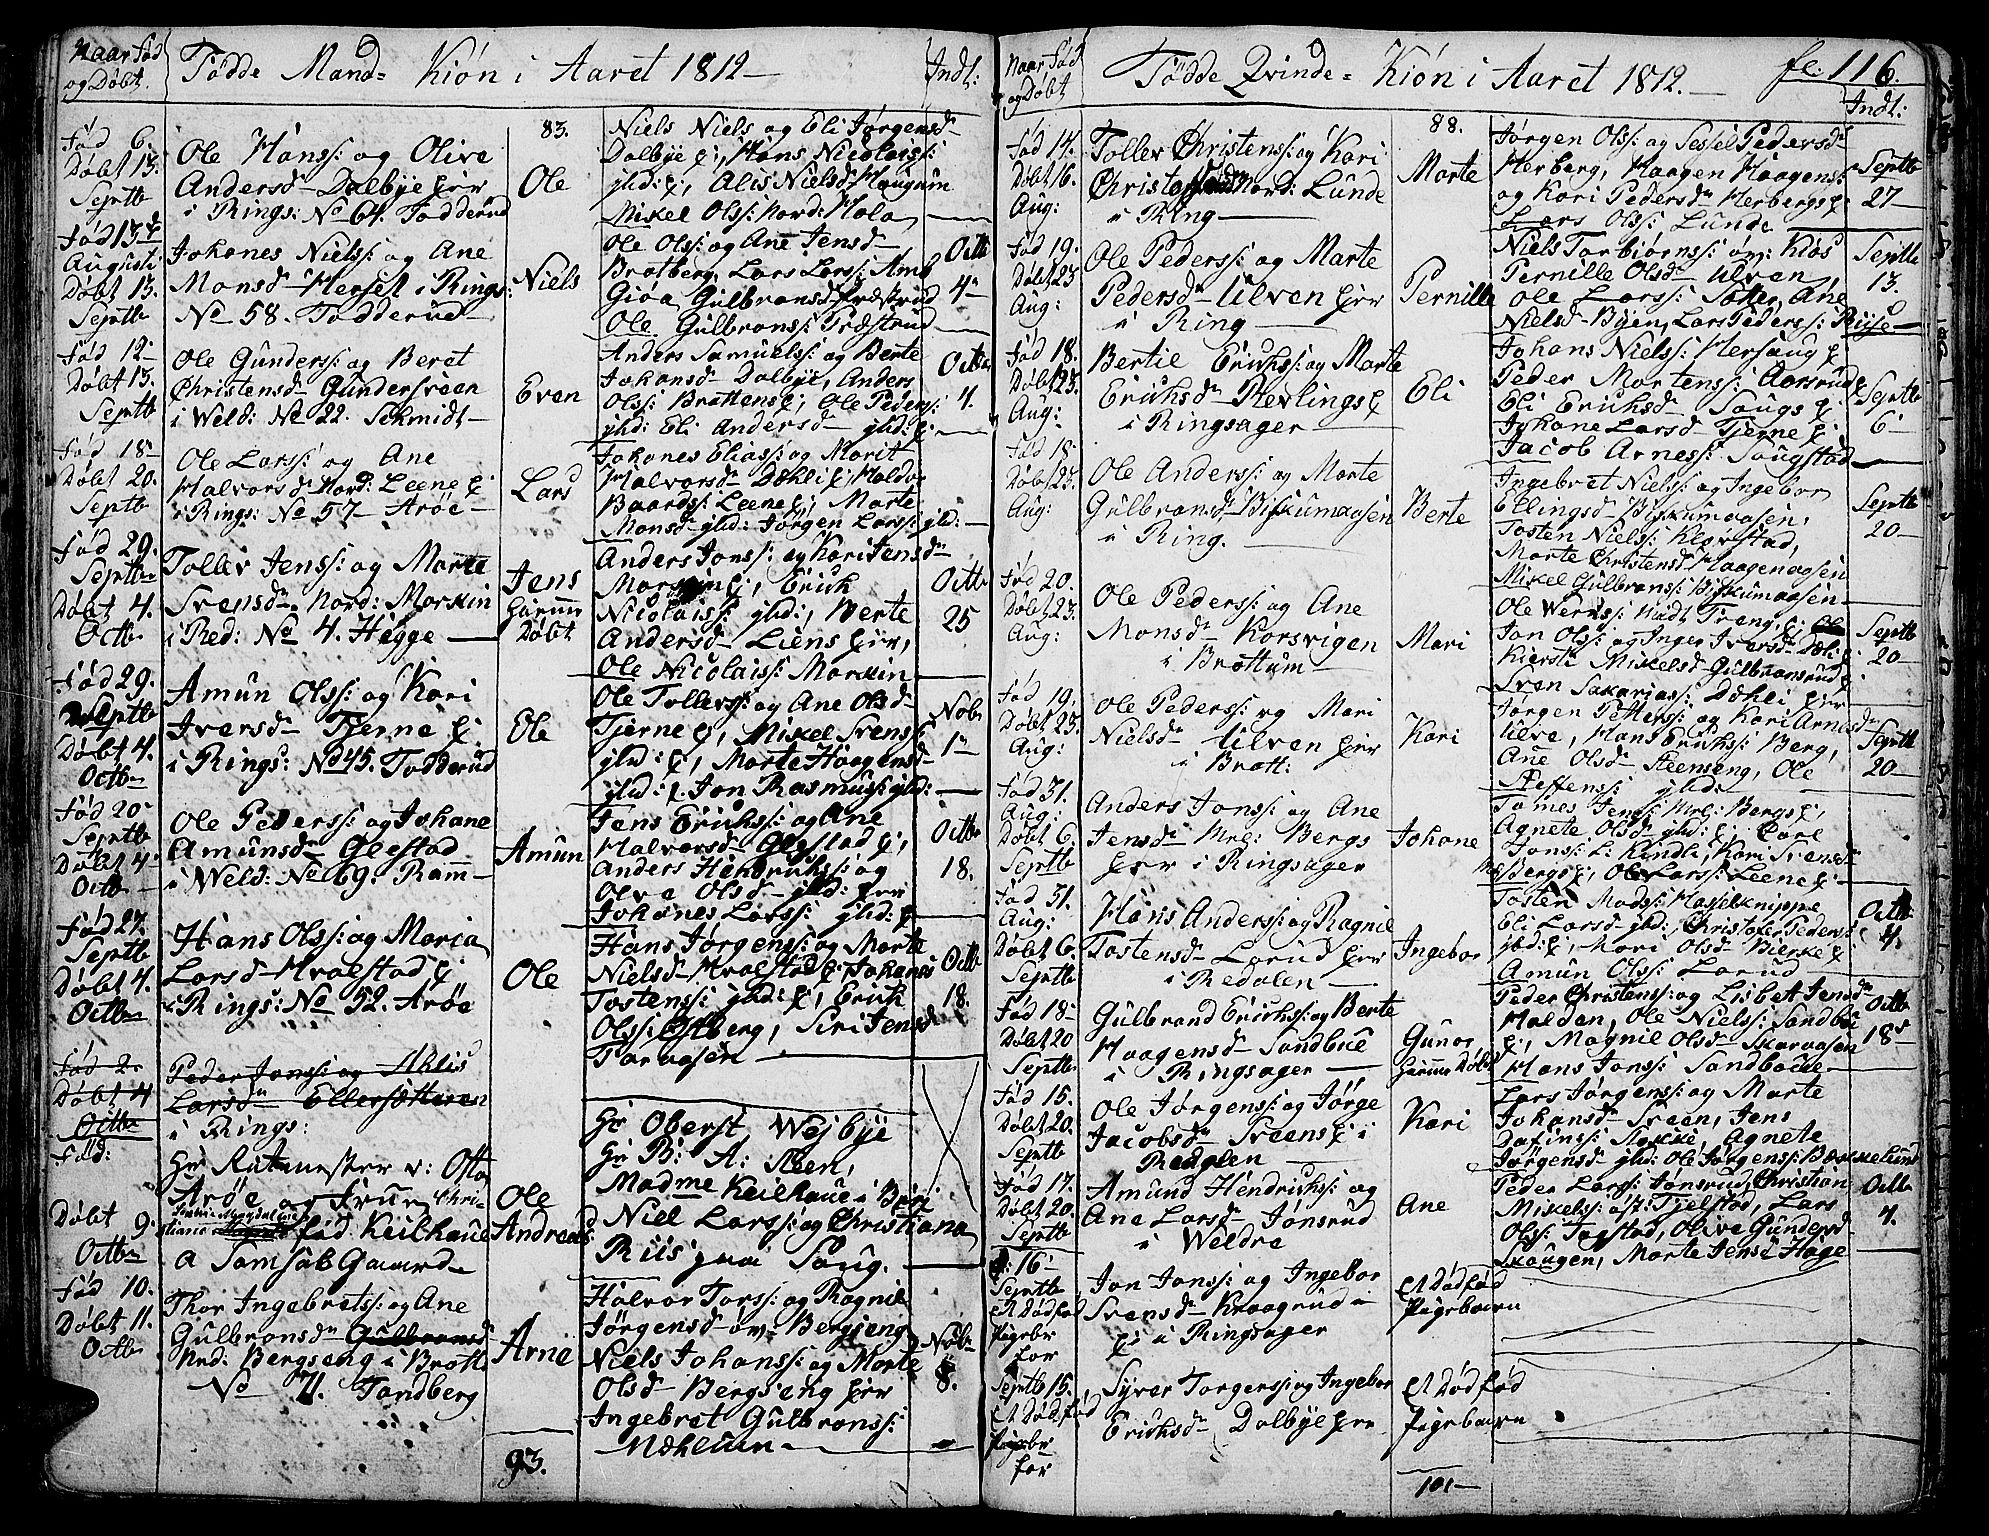 Naar Fød
og Døbt.
Fødde Mand-Kiøn i Aaret 1812
Indl:
83.
Fød 6.
Døbt 13.
Septb
Ole Hanss: og Olive
Andersd Dalbye
i Rings: No 64. Fodderud
Ole
Niels Niels og Eli Jørgensd
Dalbye ej, Hans Nicolaiss:
ybd: ej, Alis Nielsd Maugum
Mikel Olss: Nord: Mola
Fød 13de
Augusti
Døbt 13.
Septb
Johanes Nielss: og Ane
Monsd Herset i Rings:
No 58. Fodderud
Niels
Ole Olss: og Ane Jensd
Bratberg Lars Larss:
Gulbransd Præstrud
Ole Gulbranss: Præstrud
Octb
4
Fød 12
Døbt 13.
Septb
Ole Gunderss: og Beret
Christensd Gundersveen
i Weld: No 22. Schmidt
Even
Anders Samuelss: og Berte
Johansd Dalbye, Anders
Olss: Brattens ej, Ole Peders:
ybd: Eli Andersd ybd: ej
Octb
4.
Fød 18
Døbt 20.
Septb
Ole Larss: og Ane
Halvorsd Nord: Leene ej
i Rings: No 57 Arøe
Lars
Johanes Eliass: og Marit
Halvorsd Dæhli ej, Haldo
Baardss: Leene ej, Marte
Monsd ybd: Jørgen Larss: ybd:
Fød 29.
Septb
Døbt 4.
Octb
Toller Jenss: og Marte
Svensd Nord: Morskin
i Red: No 4. Hegge
Jens
Døbt
Anders Jonss: og Kari Jensd
ej, Erick
Nicolaiss: ybd:, Berte
Andersd Liens
Ole Nicolaiss: Morskin
Octb
25
Fød 29.
Septb
Døbt 4.
Octb
Amun Olss: og Kari
Iversd Tjerne ej
i Rings: No 45. Fodderud
Ole
Ole Tollerss: og Ane Olsd
Tjerne ej, Mikel Svens:
ybd: ej, Marte Haagensd
ybd: Jon Rasmuss: ybd:
Nob
1
Fød 20
Septb
Døbt 4.
Octb
Ole Pederss: og Johane
Amunsd Gjestad
i Weld: No 69. Ramm
Amun
Jens Erichss: og Ane
Halvorsd Gjestad ej,
Anders Hendrichss: og
Olea Olsd ybd:
Johanes Larss: ybd: ej
Octb
18.
Fød 27.
Septb
Døbt 4.
Octb
Hans Olss: og Maria
Larsd Hvalstad ej
i Rings: No 52. Arøe
Ole
Hans Jørgenss: og Marte
Nielsd Hvalstad ej Johanes
Tostenss: ybd: ej, Erick
Olss: Østberg, Siri Jensd
Torvaasen
Octb
18.
Fød 2.
Døbt 4
Octb
Peder Jonss: og
Larsd Ellersætteren
i Rings:
Fød:
Døbt 9.
Octb
Hr Ritmester v: Østa
Arøe og Frue Chri-
stiane fød Keilhaue
a Somsab Gaard
Ole
Andreas
Hr Oberst Wejbye
Hr B: A: Iben,
Madme Keilhaue i Biri
Niel Larss: og Christiana
Riis paa Saug.
Fød 10.
Døbt 11.
Octb
Thor Ingebretss: og Ane
Gulbransd Gulbransd
Nrd: Bergseng i Brott
No 71. Tandberg
Arne
Halvor Torss: og Ragnil
Jørgensd øv: Bergseng
Niels Johanss: og Marte
Olsd Bergseng
Ingebret Gulbranss:
Mæhlum
Nob
8.
93.
Naar Fød
og Døbt
Fødde Qvinde-Kiøn i Aaret 1812.
fl: 116.
Indl:
88.
Fød 14.
Døbt 16.
Aug:
Toller Christenss: og Kari
Nord: Lunde
i Ring
Marte
Jørgen Olss: og Sessel Pedersd
Herberg, Haagen Haagens:
og Kari Pedersd Herbergs ej
Lars Olss: Lunde
Septb
27
Fød 19.
Døbt 23
Aug:
Ole Pederss: og Marte
Pedersd Ulven
i Ring
Pernille
Niels Torbiørnss: øv: Kios
Pernille Olsd Ulven
Ole Larss: Ane
Nielsd Byen, Lars Pederss: Riise
Septb
13.
Fød 18.
Døbt 23.
Aug:
Bertie Erichss: og Marte
Erichsd Revlings ej
i Ringsager
Eli
Johans Nielss: Hersaug ej
Peder Mortenss: Aasrud
Eli Erichsd Saugs ej
Johane Larsd Tjerne ej
Jacob Arness: Saugstad
Septb
6
Fød 18.
Døbt 23.
Aug:
Ole Anderss: og Marte
Gulbransd Biskumaasen
i Ring.
Berte
Ingebret Nielss: og Ingebor
Ellingsd Biskumaasen,
Tosten Nielss: Klørstad,
Marte Christensd Haagenaasen
Mikel Gulbranss: Biskumaasen
Septb
20
Fød 20.
Døbt 23.
Aug:
Ole Pederss: og Ane
Monsd Korsvigen
i Brottum
Mari
Ole Wernss: Trang, ej
Jon Olss: og Inger Iversd Dæli ej
Kiersti Mikelsd Gulbransrud ej
Sven Sakariass: Dæhli
Septb
20
Fød 19.
Døbt 23.
Aug:
Ole Pederss: og Mari
Nielsd Ulven
i Brott:
Kari
Jørgen Petterss: og Kari Arnesd
Ulve, Hans Erichss: Berg,
Ane Olsd Steenseng, Ole
Steffenss: ybd:
Septb
20
Fød 31.
Aug:
Døbt 6.
Septb
Anders Jonss: og Ane
Jensd Mel: Bergs
i Ringsager
Johane
Tomes Jens: Mel: Bergs ej,
Agnete Olsd ybd: ej, Povel
Jonss: L: Kindli, Kari Svensd
Bergs ej, Ole Larss: Leene ej
Fød 31.
Aug:
Døbt 6.
Septb
Hans Anderss: og Ragnil
Tostensd Lorud
i Redalen
Ingebor
Tosten Madss: Hasselknippe
Eli Larsd ybd:, Christofer Peders:
ybd: ej, Mari Olsd Bierke ej
Amun Olss: Lorud
Octb
4.
Fød 18
Døbt 20
Septb
Gulbrand Erichss: og Berte
Haagensd Sandbue
i Ringsager
Gunor
Døbt
Peder Christenss: og Lisbet Jensd
Halden, Ole Nielss: Sandbue
ej, Magnil Olsd Skaraasen
Hans Jonss: Sandbacke
Octb
18
Fød 15.
Døbt 20.
Septb
Ole Jørgenss: og Jørge
Jacobsd Sveens ej i
Redalen
Kari
Lars Jørgenss: og Marte
Johansd Sveen, Jens
Dafinss: Agnete
Jørgensd ybd: Ole Jørgenss: Bækkelund
Fød 17.
Døbt 20.
Septb
Amund Hendrichss: og
Ane Larsd Jønsrud
i Weldre
Ane
Peder Larss: Jønsrud, Christian
Mikelss: øst: Tjelstad, Lars
Olss: Jegstad, Olive Gundersd
Skougen, Marte Jensd Hage
Octb
4.
16
Septb
et Dødfød
Pigebr
for
Jon Jonss: og Ingebor
Svensd Kraagrud
i Ringsager
et Dødfød
Pigebaarn
Septb 15.
et Dødfød
Pigebr
for
Syver Torgerss: og Ingebor
Erichsd Dalbye
et Dødfød
Pigebaarn
101